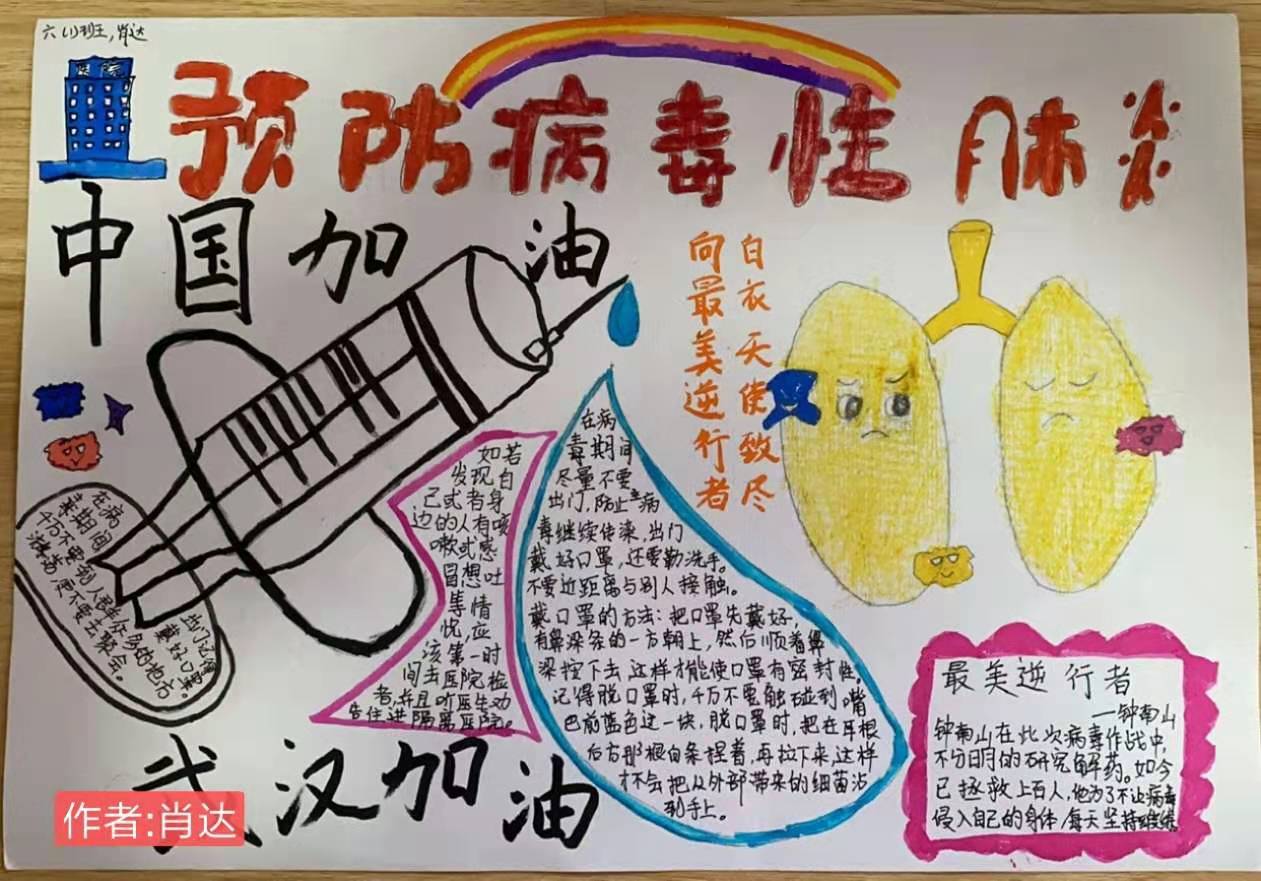 六（1）班，肖达
医院
预防病毒性肺炎
中国加油
白衣天使致尽
向最美逆行者
在病
毒期间
千万不要到人很多的地方
出门记得
戴好口罩。
更不要去聚会。
如若
发现自
己或者身
边的人有咳
嗽或感
冒想吐
等情
忧，应
该第一时
间去医院检
者，并且听医生劝
告住进隔离医院。
在病
毒期间
尽量不要
出门，防止病
毒继续传染，出门
戴好口罩，还要勤洗手。
不要近距离与别人接触。
戴口罩的方法：把口罩先戴好，
有鼻梁条的一方朝上，然后顺着鼻
梁按下去，这样才能使口罩有密封性。
记得脱口罩时，千万不要触碰到嘴
巴前蓝色这一块，脱口罩时，把在耳根
后方那根白条捏着，再拉下来，这样
才不会把从外部带来的细菌沾
到手上。
最美逆行者
—钟南山
钟南山在此次病毒作战中，
不分日时的研究解药。如今
已拯救上百人，他为了不让病毒
侵入自己的身体，每天坚持锻炼。
武汉加油
作者:肖达